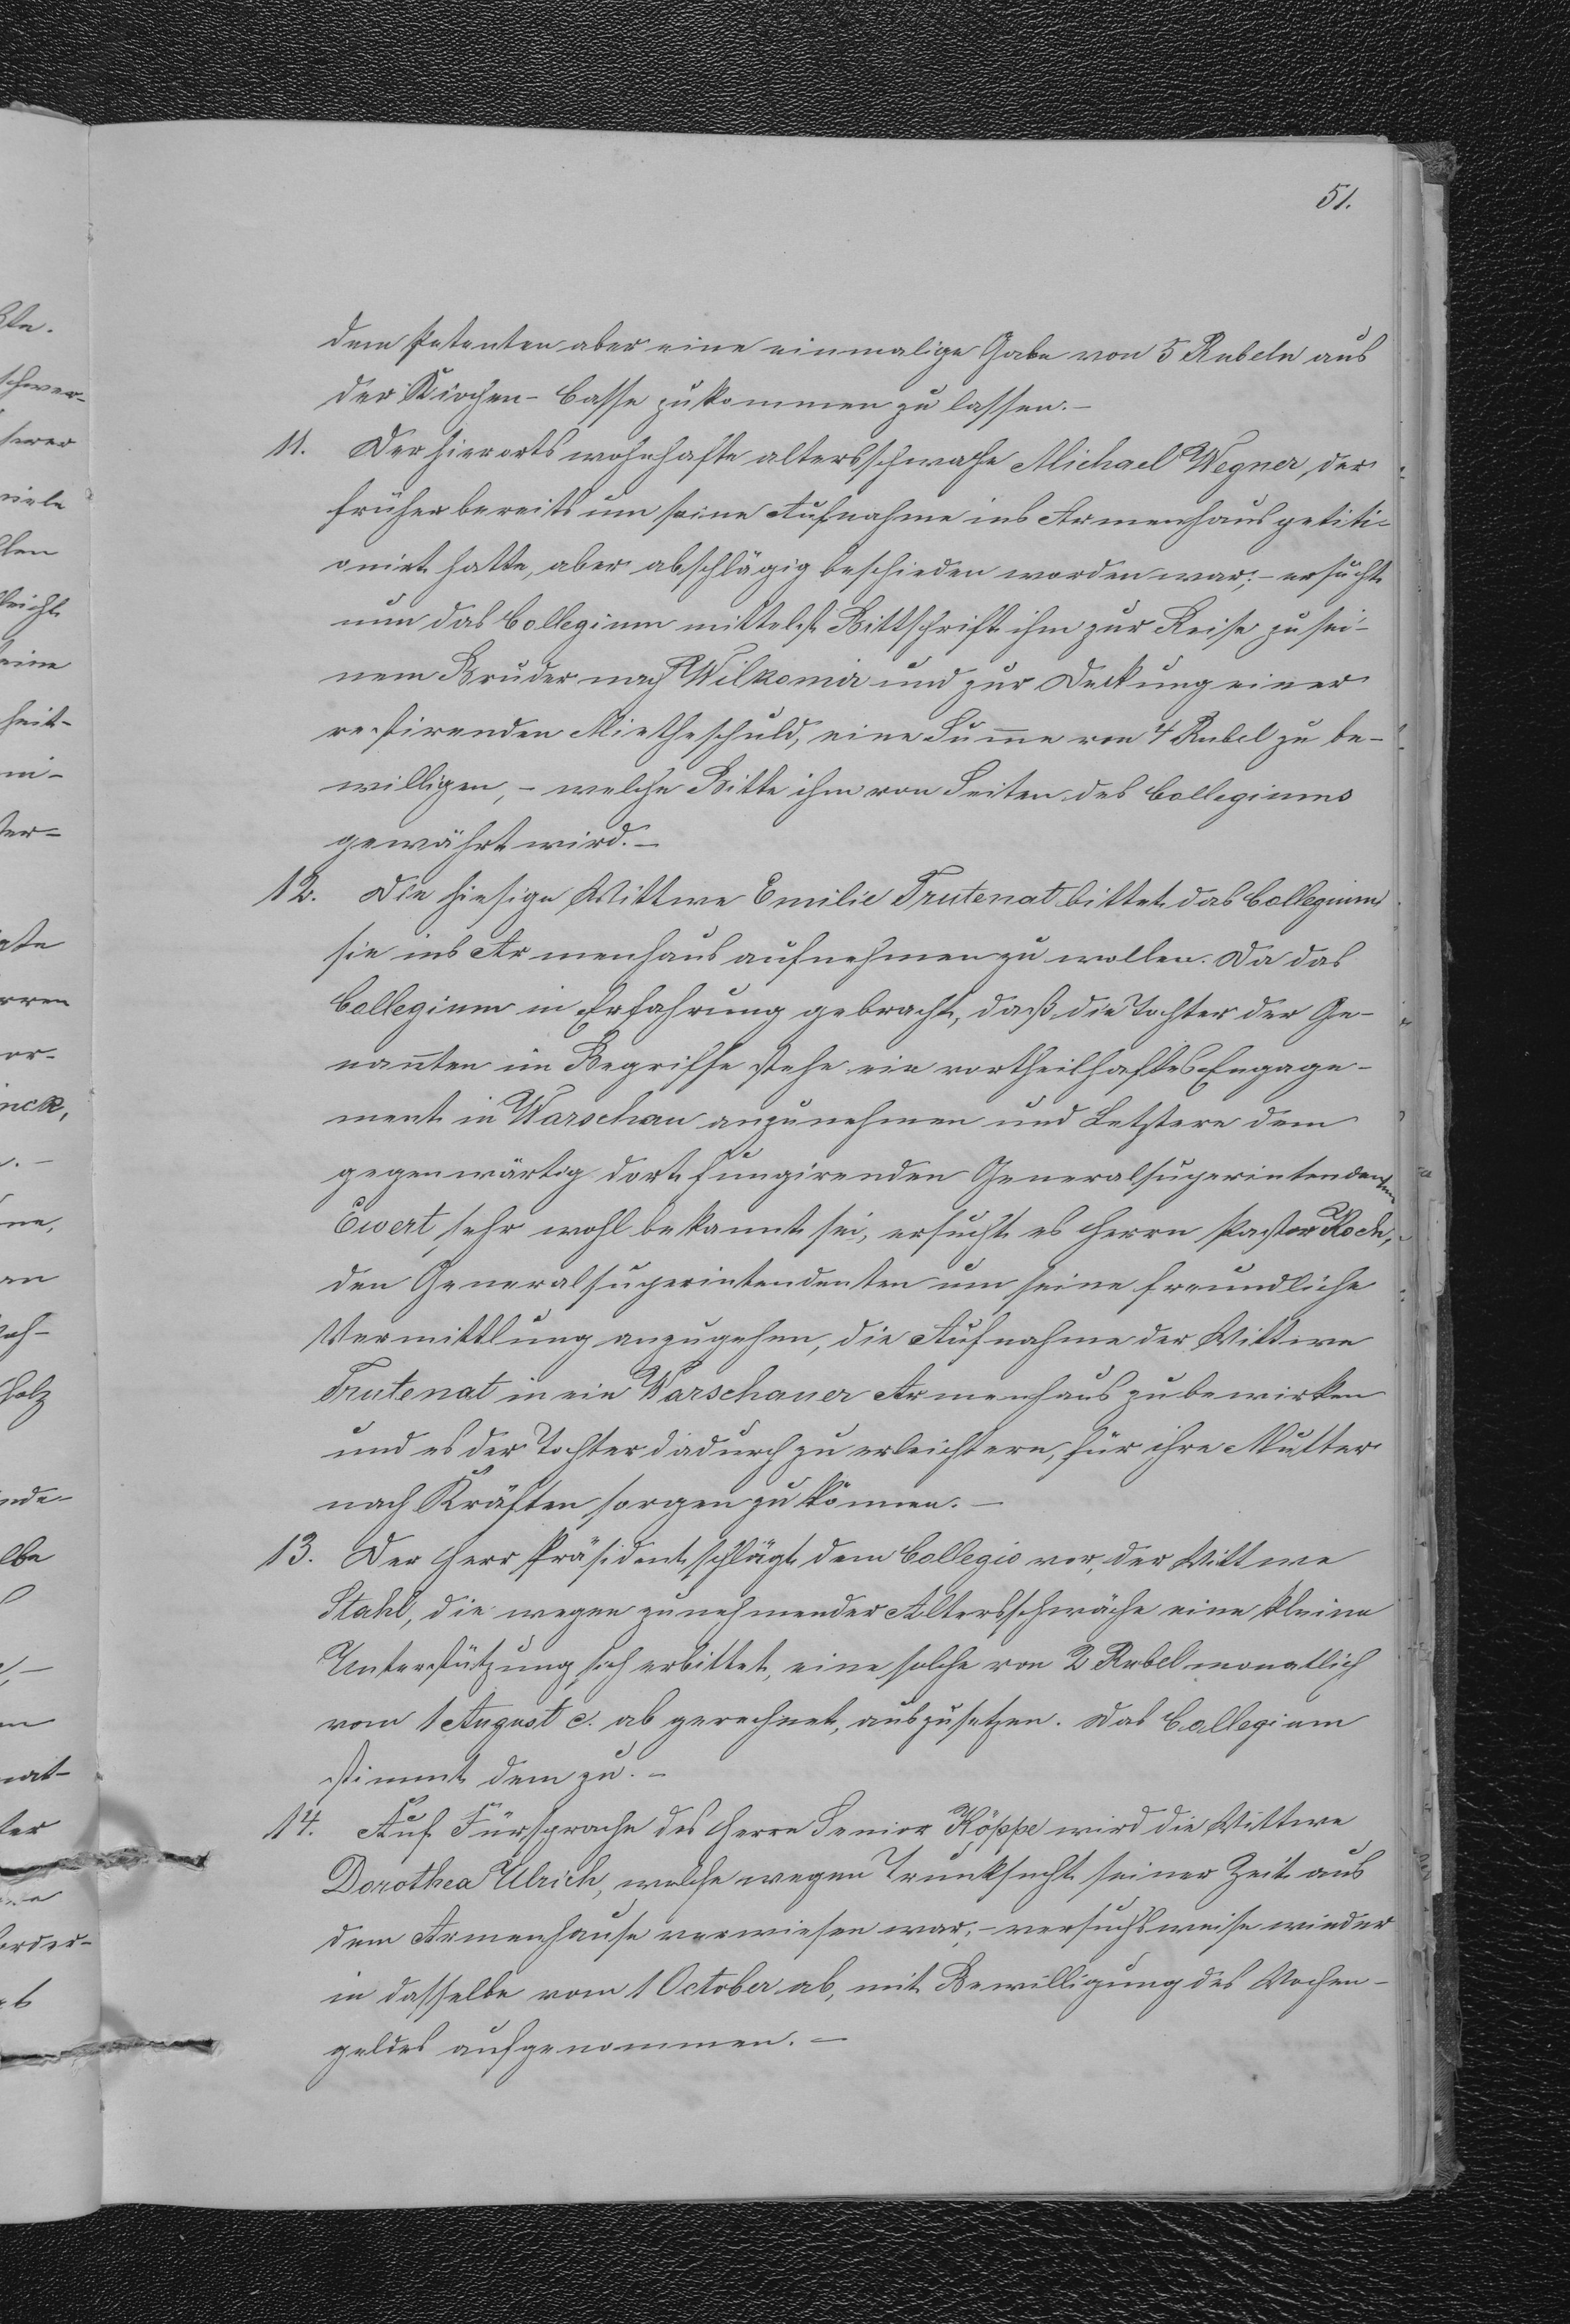 51.
dem Petenten aber eine einmalige Gabe von 5 Rubeln aus
der Kirchen-Casse zukommen zu lassen.-
11. Der hierorts wohnhafte altersschwache Michael Wegner, der
früher bereits um seine Aufnahme ins Armenhaus petiti-
oniet hatte, aber abschlägig beschieden worden war;- ersucht
nun das Collegium mittelst Bittschrift ihm zur Reise zu sei-
nem Bruder nach Wilkomir und zur Deckung einer
restirenden Miethschuld, eine Summe von 4 Rubel zu be-
willigen,- welche Bitte ihm von Seiten des Collegiums
gewährt wird.-
12. Die hiesige Wittwe Emilie Trutenat bittet das Collegium
sie ins Armenhaus aufnehmen zu wollen. Da das
Collegium in Erfahrung gebracht, daß die Tochter der Ge-
nannten im Begriffe stehe ein vortheilhaftes Engage-
ment in Warschau anzunehmen und Letztere dem
gegenwärtig dort fungirenden Generalsuperintendenten
Ewert, sehr wohl bekannt sei, ersucht es Herrn Pastor Koch,
den Generalsuperintendenten um seine freundliche
Vermittlung anzugehen, die Aufnahme der Wittwe
Trutenat in ein Warschauer Armenhaus zu bewirken
und es der Tochter dadurch zu erleichtern, für ihre Mutter
nach Kräften sorgen zu können.-
13. Der Herr Präsident schlägt dem Collegio vor, der Wittwe
Stahl, die wegen zunehmender Altersschwäche eine kleine
Unterstützung sich erbittet, eine solche von 2 Rubel monatlich
vom 1 August c. ab gerechnet, auszusetzen. Das Collegium
stimmt dem zu.-
14. Auf Fürsprache des Herrn Senior Köppe wird die Wittwe
Dorothea Ulrich, welche wegen Trunksucht seiner Zeit aus
dem Armenhause verwiesen war;- versuchsweise wieder
in dasselbe vom 1 October ab, mit Bewilligung des Wochen-
geldes aufgenommen.-